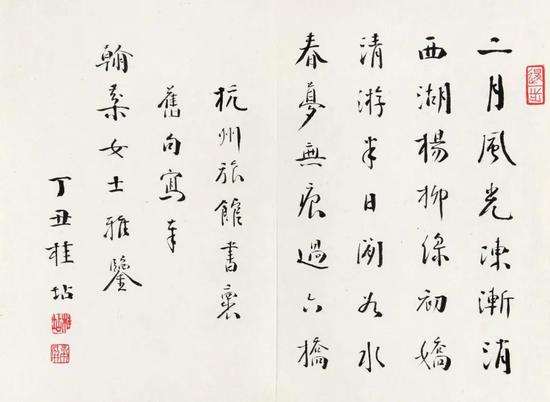 二月風光凍漸消
西湖楊柳綠初嬌
清游半日閒水
春夢無痕過六橋
杭州旅館書褱
舊句寫奉
翰素女士雅鑒
丁丑桂坫